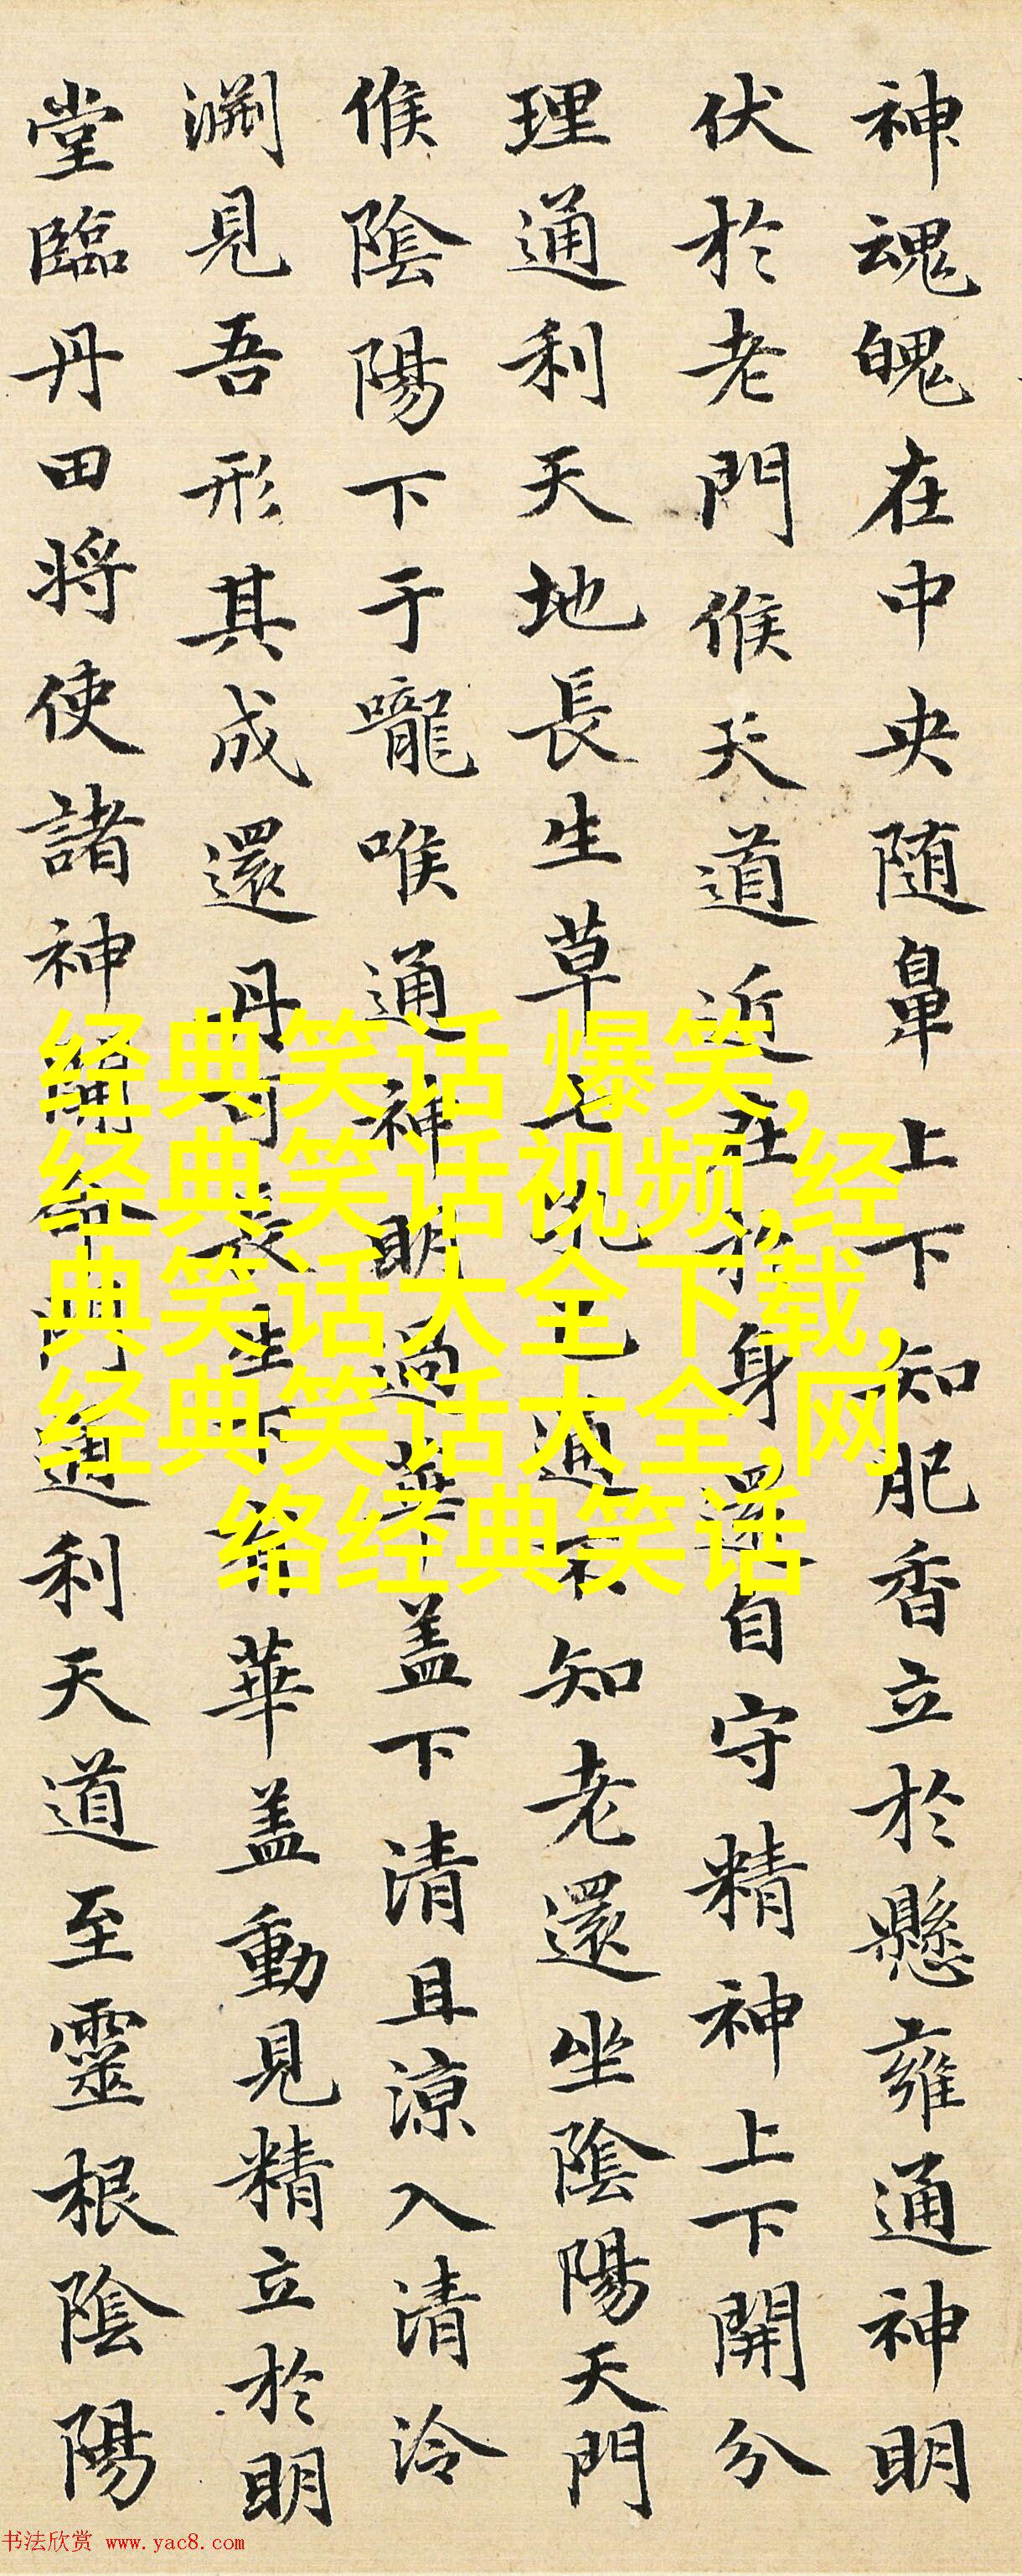 神魂魄在中央随鼻上下知肥香立於懸雍通神明
伏於老門候天道近在於身還自守精神上下開分
理通利天地長生草七孔已通不知老還坐隂陽天門
候隂陽下于嚨喉通神明過華盖下清且涼入清泠
淵見吾形其成還丹可長生下華盖動見精立於明
堂臨丹田将使諸神開命門通利天道至靈根隂陽
经典笑话 爆笑,
经典笑话视频,经
典笑话大全下载,
经典笑话大全,网
络经典笑话
书法欣赏 www.yac8.com